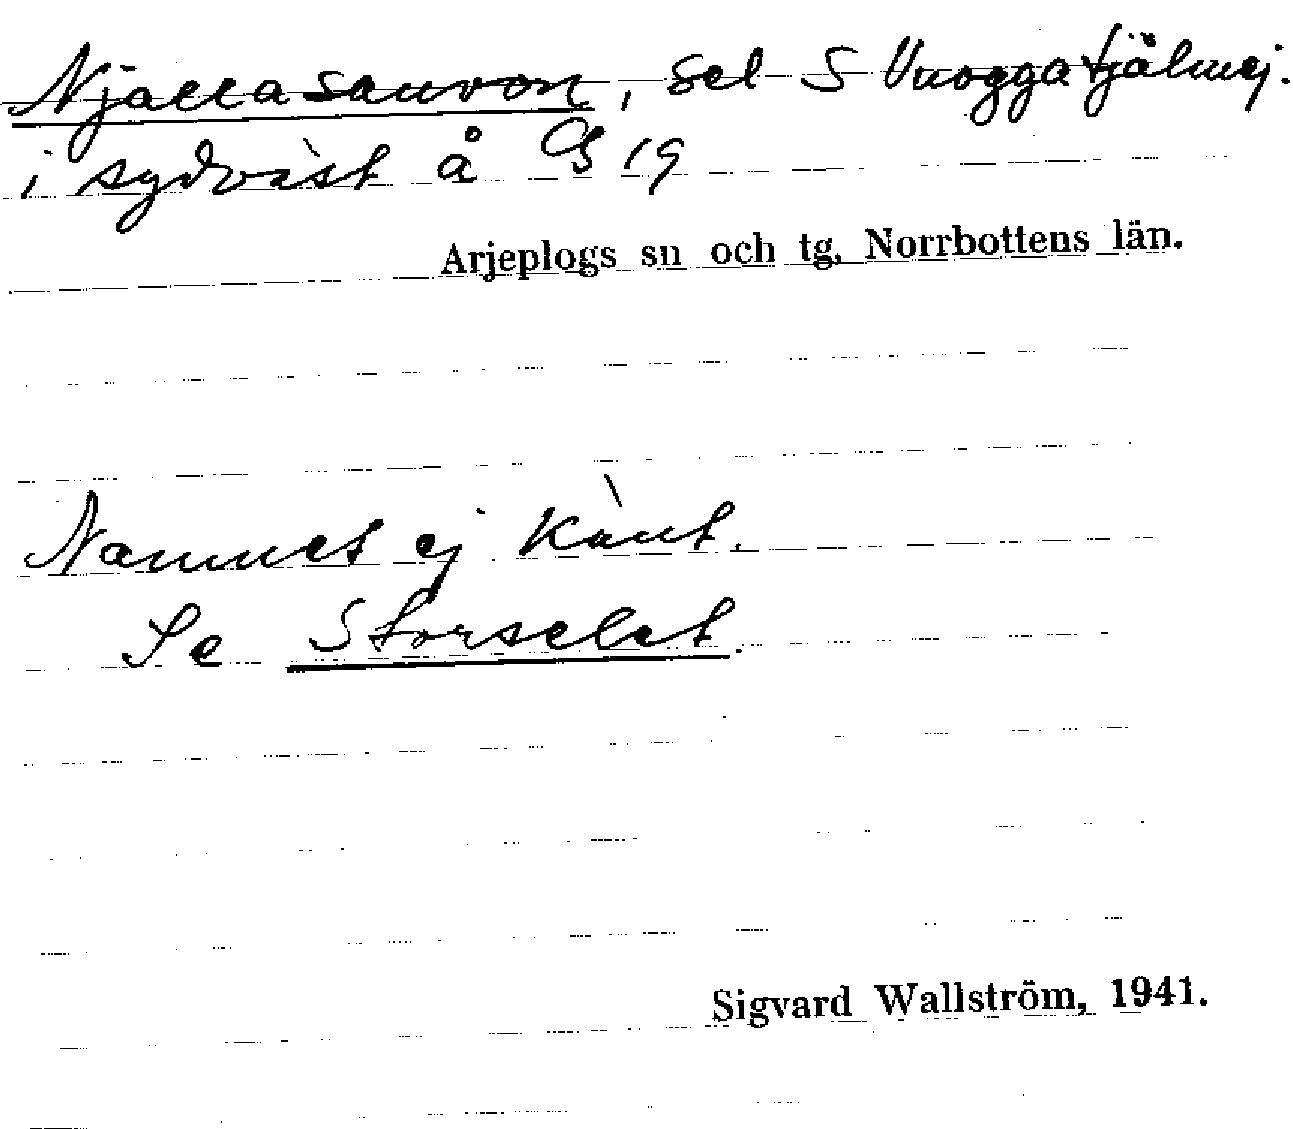 Njallasauvon, sel S Vuoggatjälmej.
i sydväst å B 19
Arjeplogs sn och tg, Norrbottens län.
Namnet ej känt.
Se Storselet.
Sigvard Wallström, 1941.